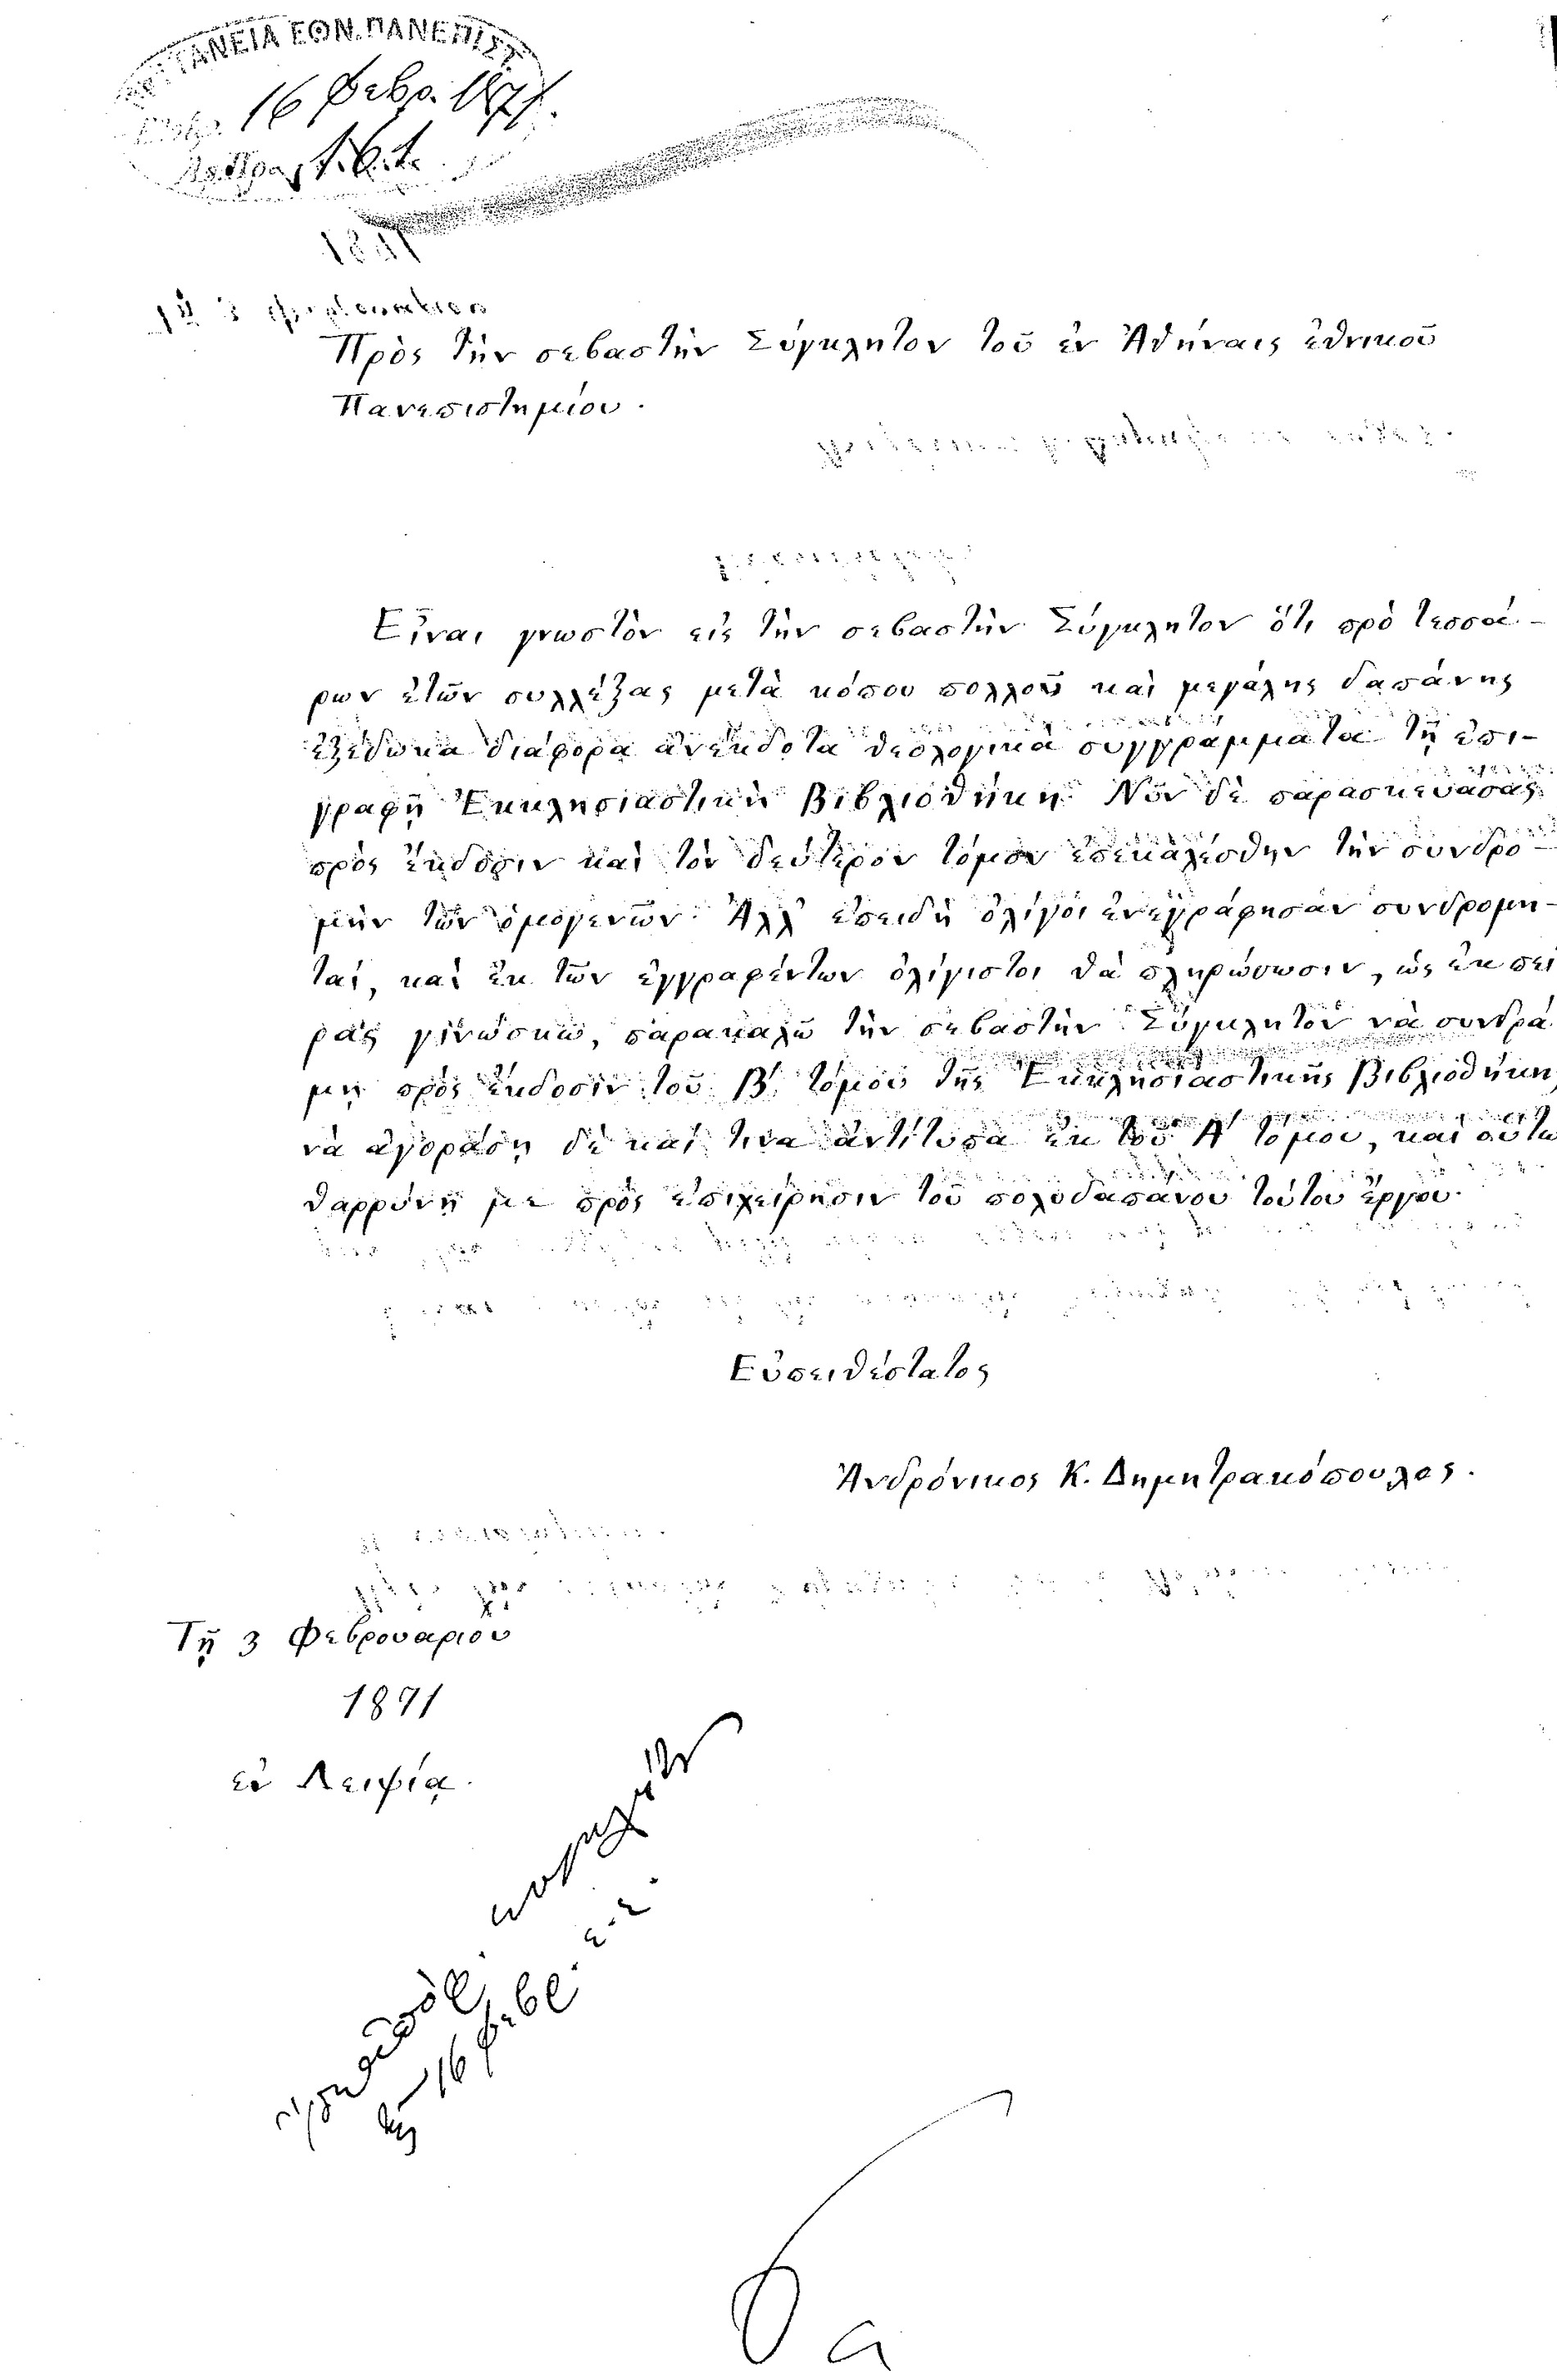 ΤΑΝΕΙΑ ΕΘΝ. ΠΑΝΕΠΙΣΤ
16 Φεβρ. 1871.
Πρὸς τὴν σεβαστὴν Σύγκλητον τοῦ ἐν Ἀθήναις ἐθνικοῦ
Πανεπιστημίου.
Εἶναι γνωστὸν εἰς τὴν σεβαστὴν Σύγκλητον ὅτι πρὸ τεσσά-
ρων ἐτῶν συλλέξας μετὰ κόπου πολλοῦ καὶ μεγάλης δαπάνης
ἐξέδωκα διάφορα ἀνέκδοτα θεολογικὰ συγγράμματα τῇ ἐπι-
γραφῇ Ἐκκλησιαστικὴ Βιβλιοθήκη. Νῦν δὲ παρασκευάσας
πρὸς ἔκδοσιν καὶ τὸν δεύτερον τόμον ἐπεκαλέσθην τὴν συνδρο-
μὴν τῶν ὁμογενῶν. Ἀλλ' ἐπειδὴ ὀλίγοι ἐνεγράφησαν συνδρομη-
ταί, καὶ ἐκ τῶν ἐγγραφέντων ὀλίγιστοι θὰ πληρώσωσιν, ὡς ἐκ πεί
ρας γινώσκω, παρακαλῶ τὴν σεβαστὴν Σύγκλητον νὰ συνδρά
μῃ πρὸς ἔκδοσιν τοῦ Β'. τόμου τῆς Ἐκκλησιαστικῆς Βιβλιοθήκης,
νὰ ἀγοράσῃ δὲ καὶ τινα ἀντίτυπα ἐκ τοῦ Α' τόμου, καὶ οὕτω
θαρρύνῃ με πρὸς ἐπιχείρησιν τοῦ πολυδαπάνου τούτου ἔργου.
Εὐπειθέστατος
Ἀνδρόνικος Κ. Δημητρακόπουλος.
Τῇ 3 Φεβρουαρίου
1871
ἐν Λειψίᾳ.
16 Φεβ